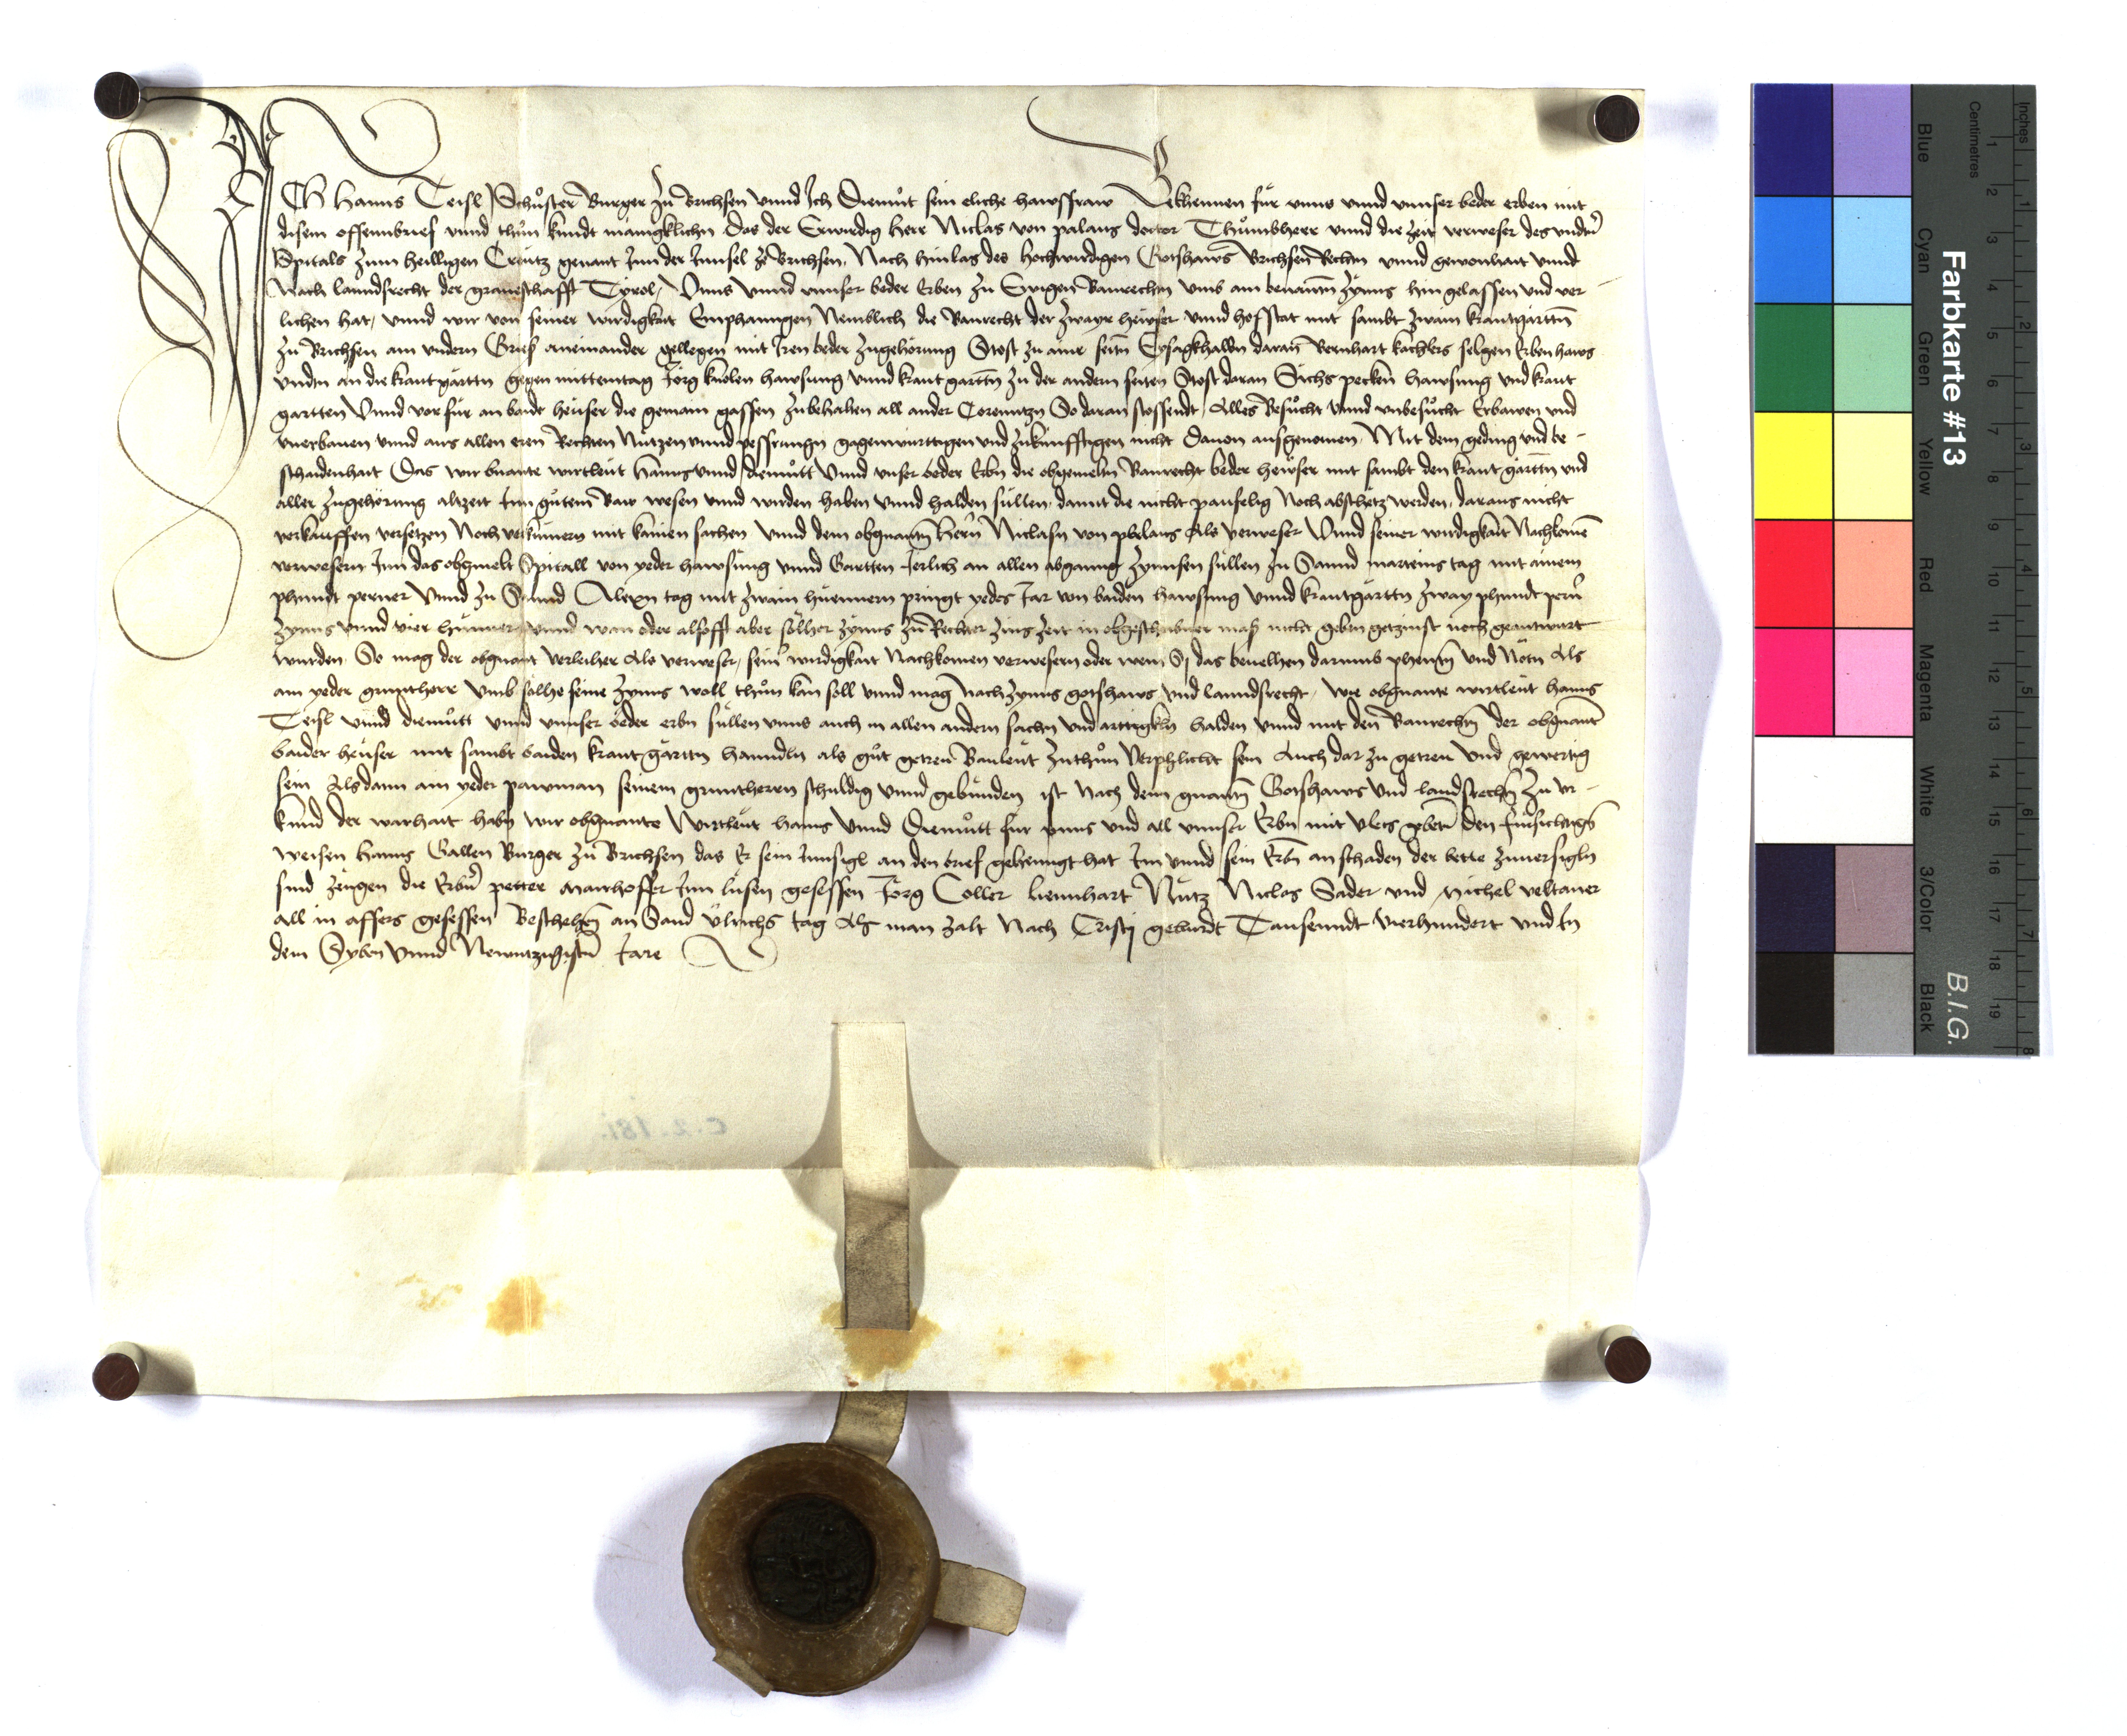 ICh Hanns Teisl Schuͦster Burger zu Brichsen vnnd Ich Diemuͦt sein eliche hawsfraw Bekhennen fur vnns vnnd vnnser beder erben mit
disem offennbrief vnnd thun kundt manigklichn Das der Erwirdig Herr Niclas von palaus doctor Thuͦmbherr vnnd die zeit verweser des vndtn̄
Spitals zum heilligen Creutz genant Inn der Innsel ze Brichsen, Nach hinlas des Hochwirdigen Gotshaws Brichsen Rechtn vnnd gewonhait vnnd
Nach lanndsrecht der graueschafft Tyrol, Vnns vnnd vnnser beder Erben zu Ewigen Baurechtn vmb ain benantn zynns hin gelassen vnd ver
lichen hat, vnnd wir von seiner wirdigkait Emphanngen Nemblich die Baurecht der zwayr hewser vnnd hofstat mit sambt zwain krautgarttn
zu Brichsen am vndern Gries aneinander gellegen mit Iren beder zugehorung Stost zu ainr seitn daran Bernhart kachlers selgen Erben haws
vndtn an die krautgarttn gegen mittemtag Jorg knolen hawsung vnnd krautgarttn zu der andern seiten Stost daran Sichs pecken hawsung vnd kraut
gartten Vnnd vor fur an baidt heuser die gemain gassen zubehalten all ander Coremitzn So daran stossendt, Alles Besuͦcht vnnd vnbesuͦcht Erbawen vnd
vnerbauen vnnd aus allen eren Rechten Nutzen vnnd pessrungn gagenwurttigen vnd zukunfftigen nicht dauon ausgenomen, Mit dem geding vnd be-
schaidenhait Das wir bnante wirtleut Hanns vnnd Diemuͦtt Vnnd vnser beder Erbn die obgemeltn Baurecht beder hewser mit sambt den kraut garttn vnd
aller zugehorung altzeit Inn gutem Baw wesen vnnd wirden haben vnnd halden sullen, damit die nicht paufelig Noch abschetz werden, daraus nicht
verkauffen versetzen Noch verkumern mit kainen sachen Vnnd dem obgnantn Hern Niclasn von phalaus Als verweser Vnnd seiner wirdigkait Nachkomē
verwesern Inn das obgmelt Spitall von yeder hawsung vnnd Gartten Jerlich an allen abganng zynnsen sullen zu Sannd marteins tag mit ainem
phundt perner Vnnd zu Sannd Alexn tag mit zwain huennern pringt yedes Jar von baiden hawsung Vnnd krautgarttn zway phundt pern̄
zynns vnnd vier huenner vnnd wan oder alsofft aber solher zynns zu Rechter zins zeit in obgeschribner mas nicht gebn getzinst noch geantwurt
wurden, So mag der obgnant verleiher Als verweser, seinr wirdigkait Nachkomen verwesern oder wem Sy das beuelhen darumb phenntn vnd Notn Als
ain yeder gruntherr vmb solhe seine zynns woll thun kan soll vnnd mag Nach zynns gotshaws vnd lanndsrecht, wie obgnante wirtleut Hanns
Teisl vnnd diemuͦtt vnnd vnnser beder erbn sullen vnns auch in allen andern sachn vnd arttigkln halden vnnd mit den Baurechtn der obgnantn̄
baider heuser mit sambt baiden kraut garttn hanndln als guͦt getreu Bauleut zuthun verphlicht sein Auch dar zu getreu Vnd gewertig
sein Als dann ain yeder pawman seinem gruntherren schuldig vnnd gebunden ist Nach dem gnantn Gotshaws Vnd landsrechtn zu vr-
kund der warhait habn wir obgnante wirtleut Hanns Vnnd Diemuͦtt fur vnns vnd all vnnser Erbn mit vleis gebetn den fursichtigñ
weisen Hanns Gallen Burger zu Brichsen das Er sein Innsigl an den brief gehenngt hat Im vnnd sein Erbn an schaden der bette zuuersigln
sind zeugen die Erbn̄ petter Mairhoffer Inn lusen gesessen Jorg Coller Liennhart Nutz Niclas Sader vnd Michel veltaner
all in affers gesessen Beschehen an Sand Ulrichs tag Als man zalt Nach Cristj geburdt Tausenndt vierhundert vnd In
dem Syben vnnd Newntzigistn̄ Jare
C. 2. 181.
Farbkarte #13
B.I.G.
Inches
Centimetres
Blue
Cyan
Green
Yellow
Red
Magenta
White
3/Color
Black
1 2 3 4 5 6 7 8 9 10 11 12 13 14 15 16 17 18 19
1 2 3 4 5 6 7 8